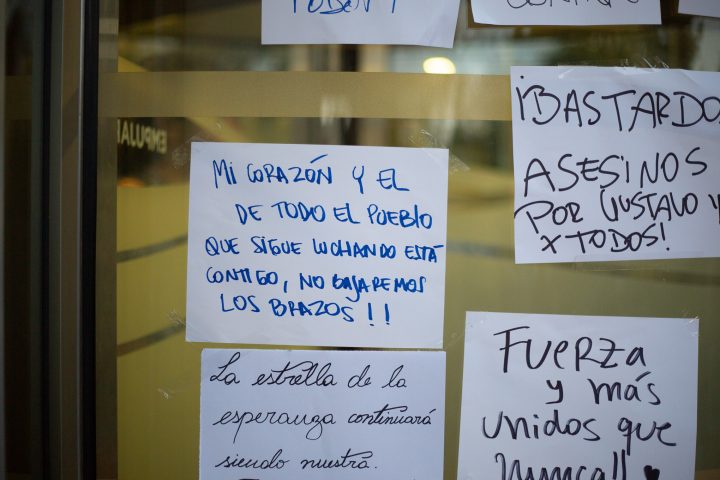 ¡BASTARDO
ASESINOS
POR GUSTAVO Y
X TODOS!
EMPUJAR
MI CORAZÓN Y EL
DE TODO EL PUEBLO
QUE SIGUE LUCHANDO ESTÁ
CONTIGO, NO BAJAREMOS
LOS BRAZOS!!
FUERZA
y más
unidos que
nunca!!
La estrella de la
esperanza continuará
siendo nuestra.